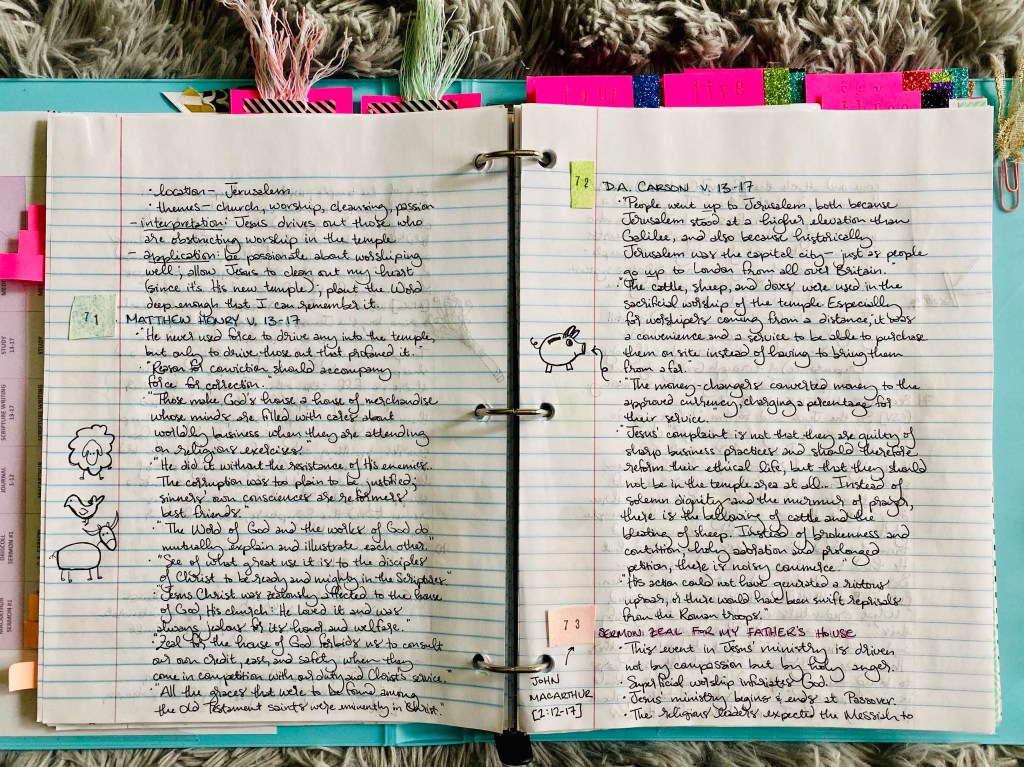 four
five
six
three
STUDY
13-17
SCRIPTURE WRITING
13-17
JOURNAL
1-12
DRISCOLL
SERMON #1
MACARTHUR
SERMON #1
• location – Jerusalem
• themes – church, worship, cleansing, passion
– interpretation: Jesus drives out those who
are obstructing worship in the temple
– application: be passionate about worshiping
well; allow Jesus to clean out my heart
(since it's His new temple); plant the Word
deep enough that I can remember it.
71
MATTHEW HENRY V. 13-17
• "He never used force to drive any into the temple,
but only to drive those out that profaned it."
• "Reason for conviction should accompany
force for correction."
• "Those make God's house a house of merchandise
whose minds are filled with cares about
worldly business when they are attending
on religious exercises."
• "He did it without the resistance of His enemies.
The corruption was too plain to be justified;
sinners' own consciences are reformers'
best friends."
• "The Word of God and the works of God do
mutually explain and illustrate each other."
• "See of what great use it is to the disciples
of Christ to be ready and mighty in the Scriptures."
• "Jesus Christ was zealously affected to the house
of God, His church: He loved it and was
always jealous for its honor and welfare."
• "Zeal for the house of God forbids us to consult
our own credit, ease, and safety when they
come in competition with our duty and Christ's service."
• "All the graces that were to be found among
the Old Testament saints were eminently in Christ."
72
D.A. CARSON V. 13-17
• "People went up to Jerusalem, both because
Jerusalem stood at a higher elevation than
Galilee, and also because historically
Jerusalem was the capital city – just as people
go up to London from all over Britain."
• "The cattle, sheep, and doves were used in the
sacrificial worship of the temple. Especially
for worshipers coming from a distance, it was
a convenience and a service to be able to purchase
them on site instead of having to bring them
from afar."
• "The money-changers converted money to the
approved currency, charging a percentage for
their service."
• "Jesus' complaint is not that they are guilty of
sharp business practices and should therefore
reform their ethical life, but that they should
not be in the temple area at all... Instead of
solemn dignity and the murmur of prayer,
there is the bellowing of cattle and the
bleating of sheep. Instead of brokenness and
contrition, holy adoration and prolonged
petition, there is noisy commerce."
• "His action could not have generated a riotous
uproar, or there would have been swift reprisals
from the Roman troops."
73
SERMON: ZEAL FOR MY FATHER'S HOUSE
JOHN
MACARTHUR
[2-12-17]
• This event in Jesus' ministry is driven
not by compassion but by holy anger.
• Superficial worship infuriates God.
• Jesus' ministry begins & ends at Passover.
• The religious leaders expected the Messiah to